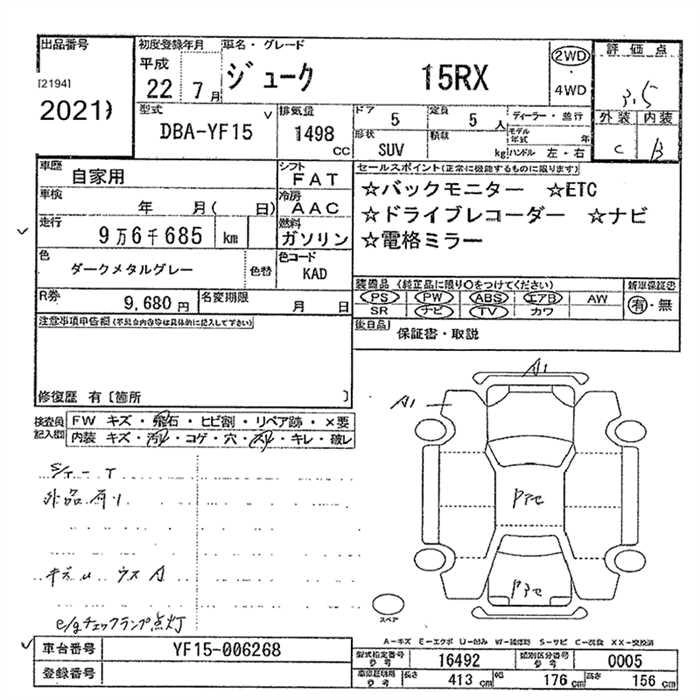 出品番号 初度登録年月 車名・グレード 評価点
平成 22 7月 ジューク 15RX 2WD 4WD 3.5
[2194]
2021
型式 排気量 ドア 定員 ディーラー・並行 外装 内装
DBA-YF15 1498 CC 5 5人 モデル年式 年 C B
形状 SUV 積載 kg ハンドル 左・右
車歴 自家用 シフト FAT セールスポイント(正常に機能するものに限ります)
車検 年 月(日) 冷房 AAC ☆バックモニター ☆ETC
走行 9万6千685 km 燃料 ガソリン ☆ドライブレコーダー ☆ナビ
☆電格ミラー
色 ダークメタルグレー 色替 色コード KAD
装備品 (純正品に限り○をつけてください) 新車保証書
R券 9,680円 名変期限 月 日 PS PW ABS エアB AW 有・無
SR ナビ TV カワ
注意事項申告欄(不具合内容等は具体的に記入して下さい) 後日品 保証書・取説
修復歴 有〔箇所 〕
検査員記入欄 FW キズ・飛石・ヒビ割・リペア跡・×要
内装 キズ・汚れ・コゲ・穴・スレ・キレ・破レ
A1
A1
S/T-T
外品有り
キズu ウスA
e/gチェックランプ点灯
スペア
A-キズ E-エクボ U-凹み W-補修跡 S-サビ C-腐食 XX-交換済
車台番号 YF15-006268 型式指定番号 参考 16492 類別区分番号 参考 0005
登録番号 車両証明用 参考 長さ 413cm 幅 176cm 高さ 156cm